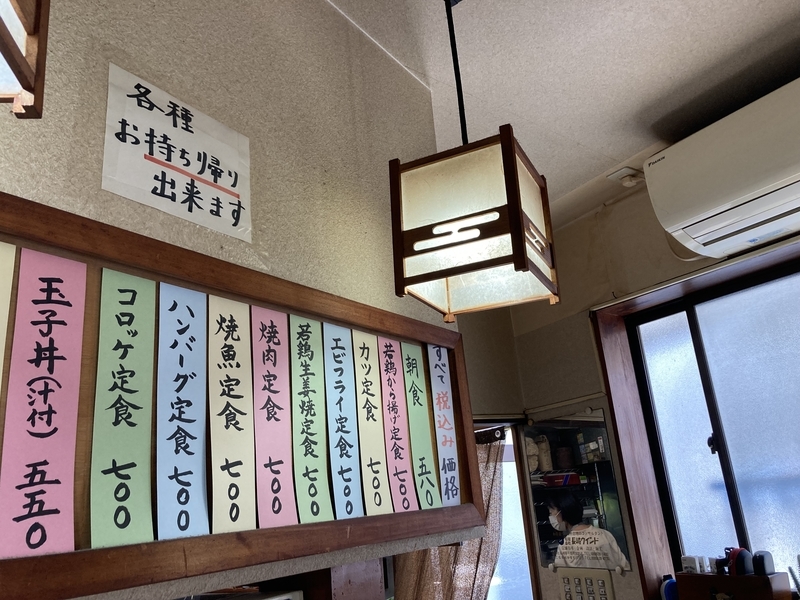 各種
お持ち帰り
出来ます
すべて税込み価格
朝食 五八〇
若鶏から揚げ定食 七〇〇
カツ定食 七〇〇
エビフライ定食 七〇〇
若鶏生姜焼定食 七〇〇
焼肉定食 七〇〇
焼魚定食 七〇〇
ハンバーグ定食 七〇〇
コロッケ定食 七〇〇
玉子丼(汁付) 五五〇
DAIKIN